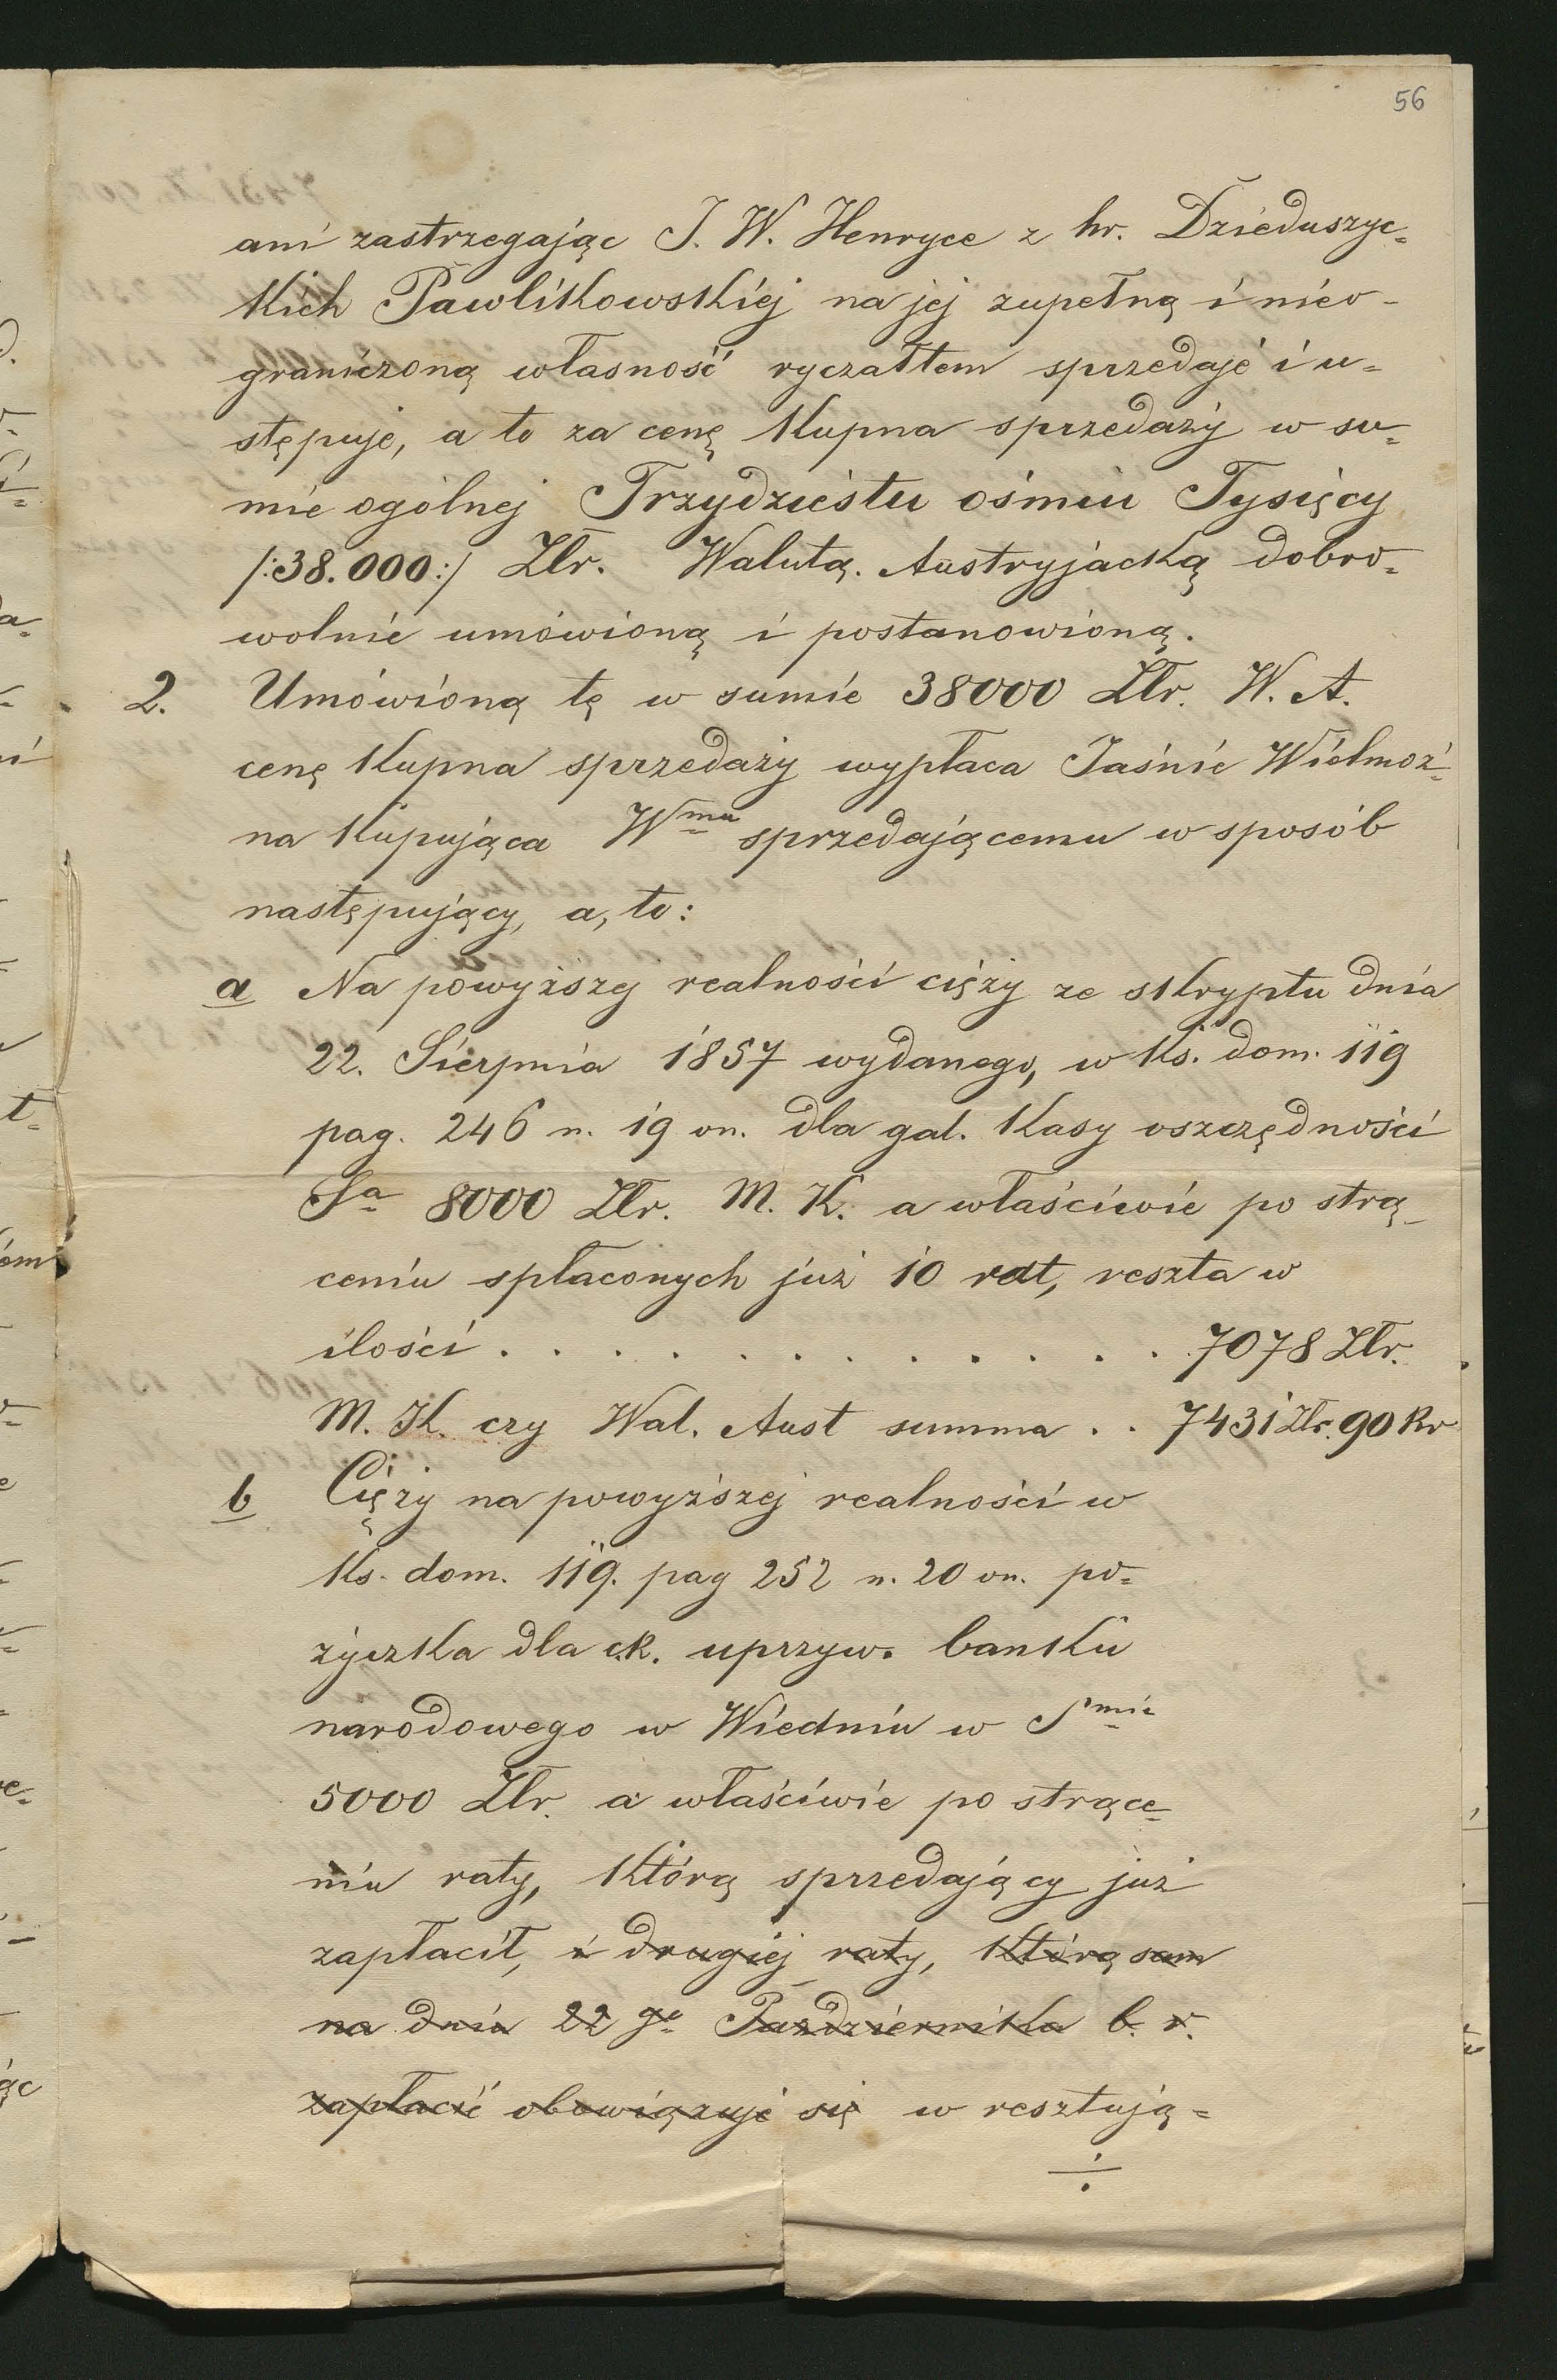 56
ani zastrzegając J. W. Henryce z hr. Dzieduszyc=
kich Pawlikowskiéj na jej zupełną i nieo-
graniczoną własność ryczałtem sprzedaje i u=
stępuje, a to za cenę kupna sprzedaży w su=
mie ogólnej Trzydziestu ośmiu Tysięcy
/:38.000:/ Złr. Walutą. Austryjacką dobro=
wolnie umówioną i postanowioną.
2. Umówioną tę w sumie 38000 Złr. W. A.
cenę kupna sprzedaży wypłaca Jaśnie Wielmoż=
na kupująca Wmu sprzedającemu w sposób
następujący, a, to:
a Na powyższej realności cięży ze skryptu dnia
22. Sierpnia 1857 wydanego, w ks. dom. 119
pag. 246 n. 19 on. dla gal. kasy oszczędności
Sa 8000 Złr. M. K. a właściwie po strą-
ceniu spłaconych już 10 rat, reszta w
ilości . . . . . . . . . . . . 7078 Złr.
M. K. czy Wal. Aust summa . . 7431 Złr. 90 kr
b Cięży na powyższej realności w
ks. dom. 119. pag 252 n. 20 on. po=
życzka dla c.k. uprzyw. banku
narodowego w Wiedniu w Smie
5000 Złr. a właściwie po strące=
niu raty, którą sprzedający już
zapłacił, i drugiej raty, którą sam
na dniu 22 go Października b. r.
zapłacić obowiązuje się w resztują=